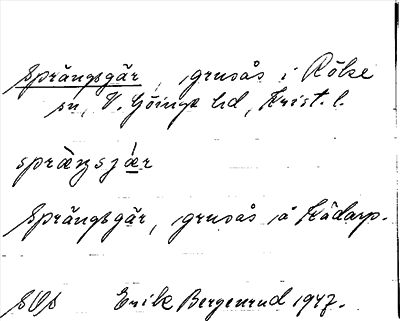 Sprängsgär, grusås i Röke
sn, V. Göinge hd, Krist. l.
spräŋsjǽr
Sprängsgär, grusås i Kådarp.
Erik Bergenrud 1947.